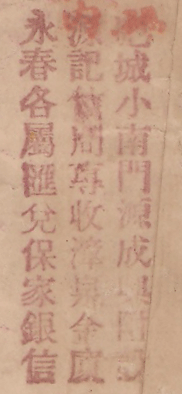 城小南門源成
記信局專收泉金廈
永春各屬匯兌保家銀信